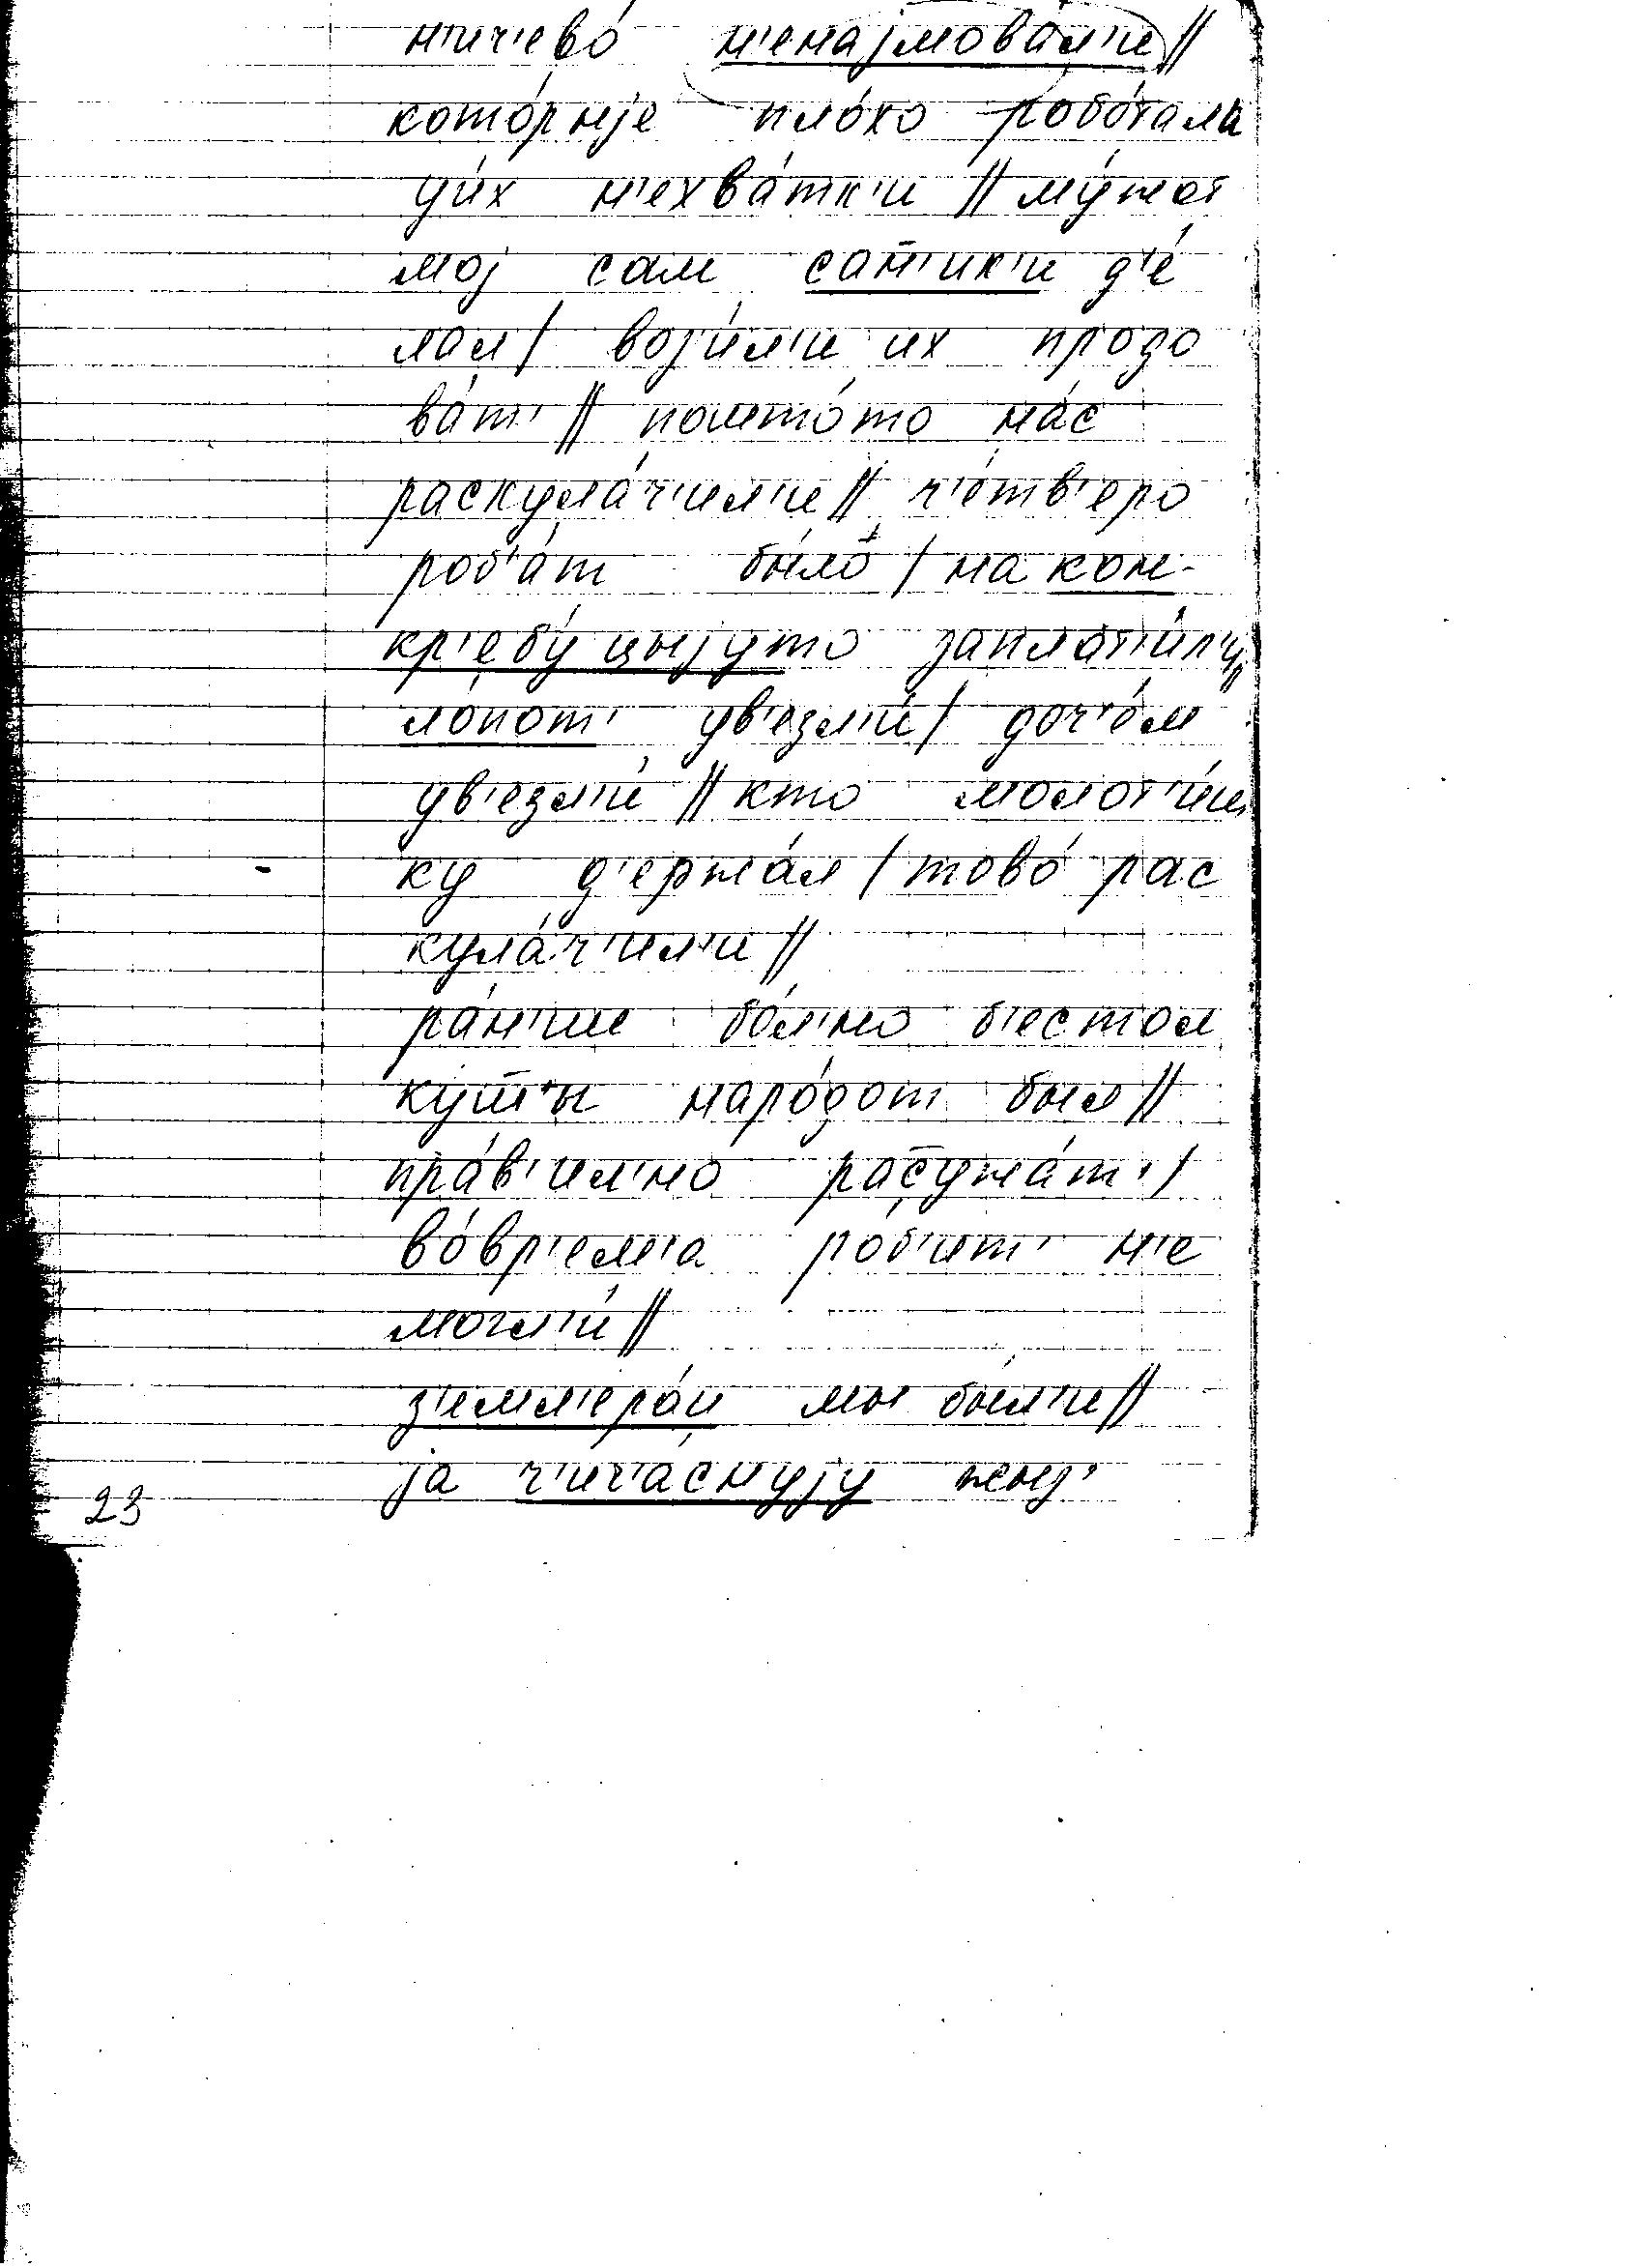 н'ич'ево́ н'енајмова́л'и//
кото́рыје пло́хо робо́тала
уи́х н'ехва́тк'и // му́жот
мој сам са́н'ик'и д'е́
лал/ воз'и́л'и их продо
ва́т' // пошто́то на́с
раскула́ч'ил'и// ч'е́тв'еро
роб'а́т бы́ло / на кон-
кр'ебу́цыјуто заплат'и́л'и//
лопот' ув'езл'и́/ доч'о́м
ув'езл'и́ // кто молот'и́л
ку д'ержа́л / тово́ рас
кула́ч'ил'и//
ра́н'ше бо́л'но б'естол
кут'ы наро́дот был//
пра́в'ил'но расужа́т' /
во́вр'ем'а ро́б'ит' н'е
могл'и́//
з'емл'еро́и мы бы́л'и//
ја ч'ич'а́снују жыз'
23